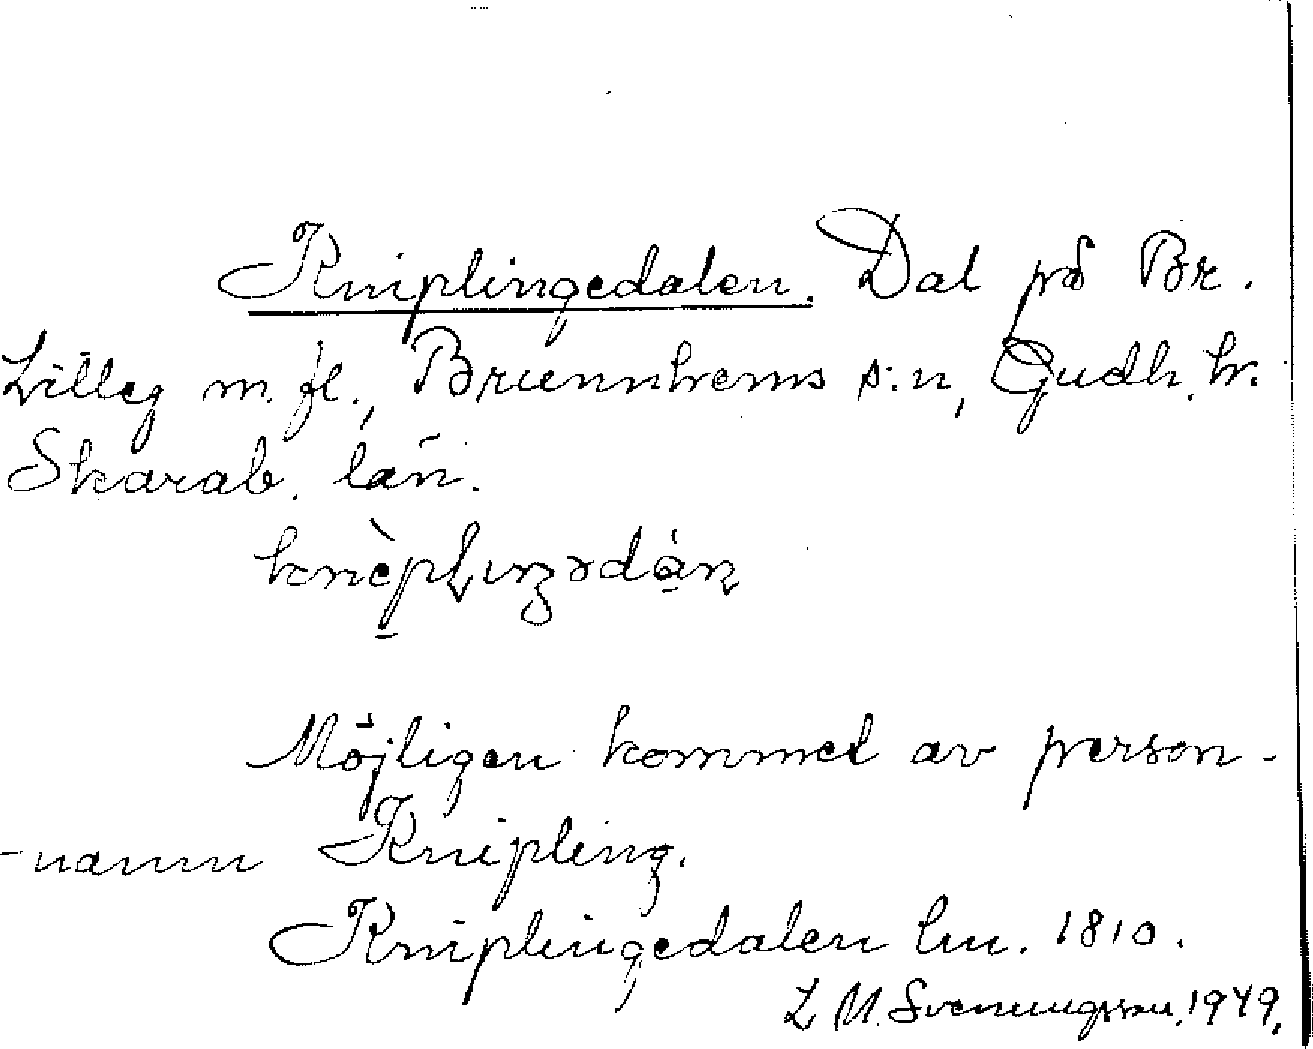 Kniplingedalen. Dal på Br.
Lilleg m. fl., Brunnhems s:n, Gudh. h.
Skarab. län.
Möjligen kommet av person-
-namn Knipling.
Kniplingedalen lm. 1810.
L M. Svenungsson. 1949.